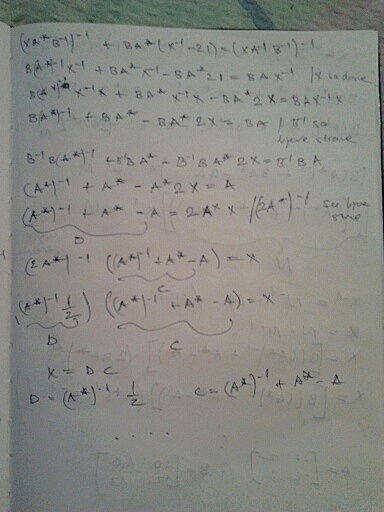 (XA* B⁻¹)⁻¹ + BA* (X⁻¹ - 2I) = (XA⁻¹ B⁻¹)⁻¹
B(A*)⁻¹ X⁻¹ + BA* X⁻¹ - BA* 2I = BAX⁻¹ /X so desne
B(A*)⁻¹ X⁻¹X + BA* X⁻¹X - BA* 2X = BAX⁻¹X
B(A*)⁻¹ + BA* - BA* 2X = BA / B⁻¹ so leve strane
B⁻¹B(A*)⁻¹ + B⁻¹BA* - B⁻¹BA* 2X = B⁻¹BA
(A*)⁻¹ + A* - A* 2X = A
(A*)⁻¹ + A* - A = 2A* X /(2A*)⁻¹ so leve
D
(2A*)⁻¹ ((A*)⁻¹ + A* - A) = X
C
(A*)⁻¹ 1/2) ((A*)⁻¹ + A* - A) = X
D C
X = D C
D = (A*)⁻¹ 1/2 C = (A*)⁻¹ + A* - A
. . . .